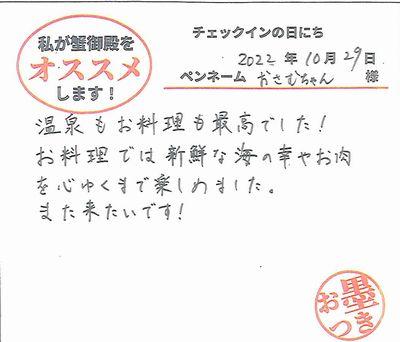 私が蟹御殿を
オススメ
します！
チェックインの日にち
2022 年 10 月 29 日
ペンネーム おさむちゃん 様
温泉もお料理も最高でした！
お料理では新鮮な海の幸やお肉
を心ゆくまで楽しめました。
また来たいです！
お墨つき